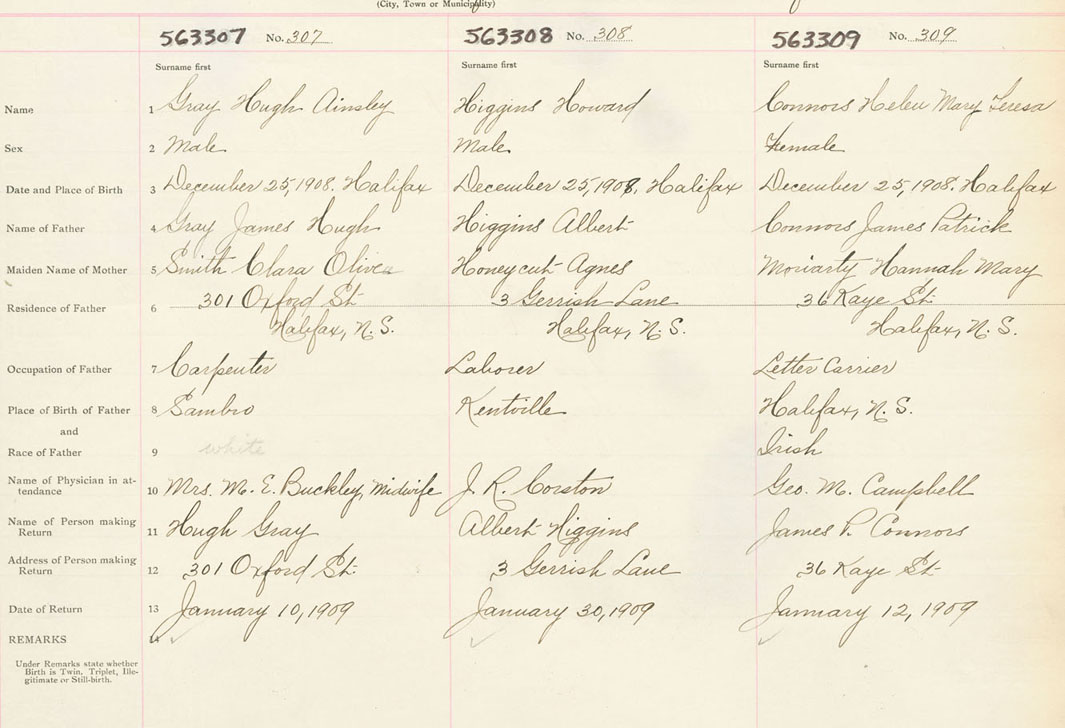 (City, Town or Municipality)
563307 No. 307 563308 No. 308 563309 No. 309
Surname first Surname first Surname first
Name 1 Gray Hugh Ainsley Higgins Howard Connors Helen Mary Teresa
Sex 2 Male Male Female
Date and Place of Birth 3 December 25, 1908. Halifax December 25, 1908, Halifax December 25, 1908. Halifax
Name of Father 4 Gray James Hugh Higgins Albert Connors James Patrick
Maiden Name of Mother 5 Smith Clara Olivea Honeycut Agnes Moriarty Hannah Mary
Residence of Father 6 301 Oxford St. 3 Gerrish Lane 36 Kaye St.
Halifax, N.S. Halifax, N.S. Halifax, N.S.
Occupation of Father 7 Carpenter Laborer Letter Carrier
Place of Birth of Father 8 Sambro Kentville Halifax, N.S.
and
Race of Father 9 white Irish
Name of Physician in at-
tendance 10 Mrs. M. E. Buckley, Midwife J. R. Corston Geo. M. Campbell
Name of Person making
Return 11 Hugh Gray Albert Higgins James P. Connors
Address of Person making
Return 12 301 Oxford St. 3 Gerrish Lane 36 Kaye St.
Date of Return 13 January 10, 1909 January 30, 1909 January 12, 1909
REMARKS 14
Under Remarks state whether
Birth is Twin, Triplet, Ille-
gitimate or Still-birth.